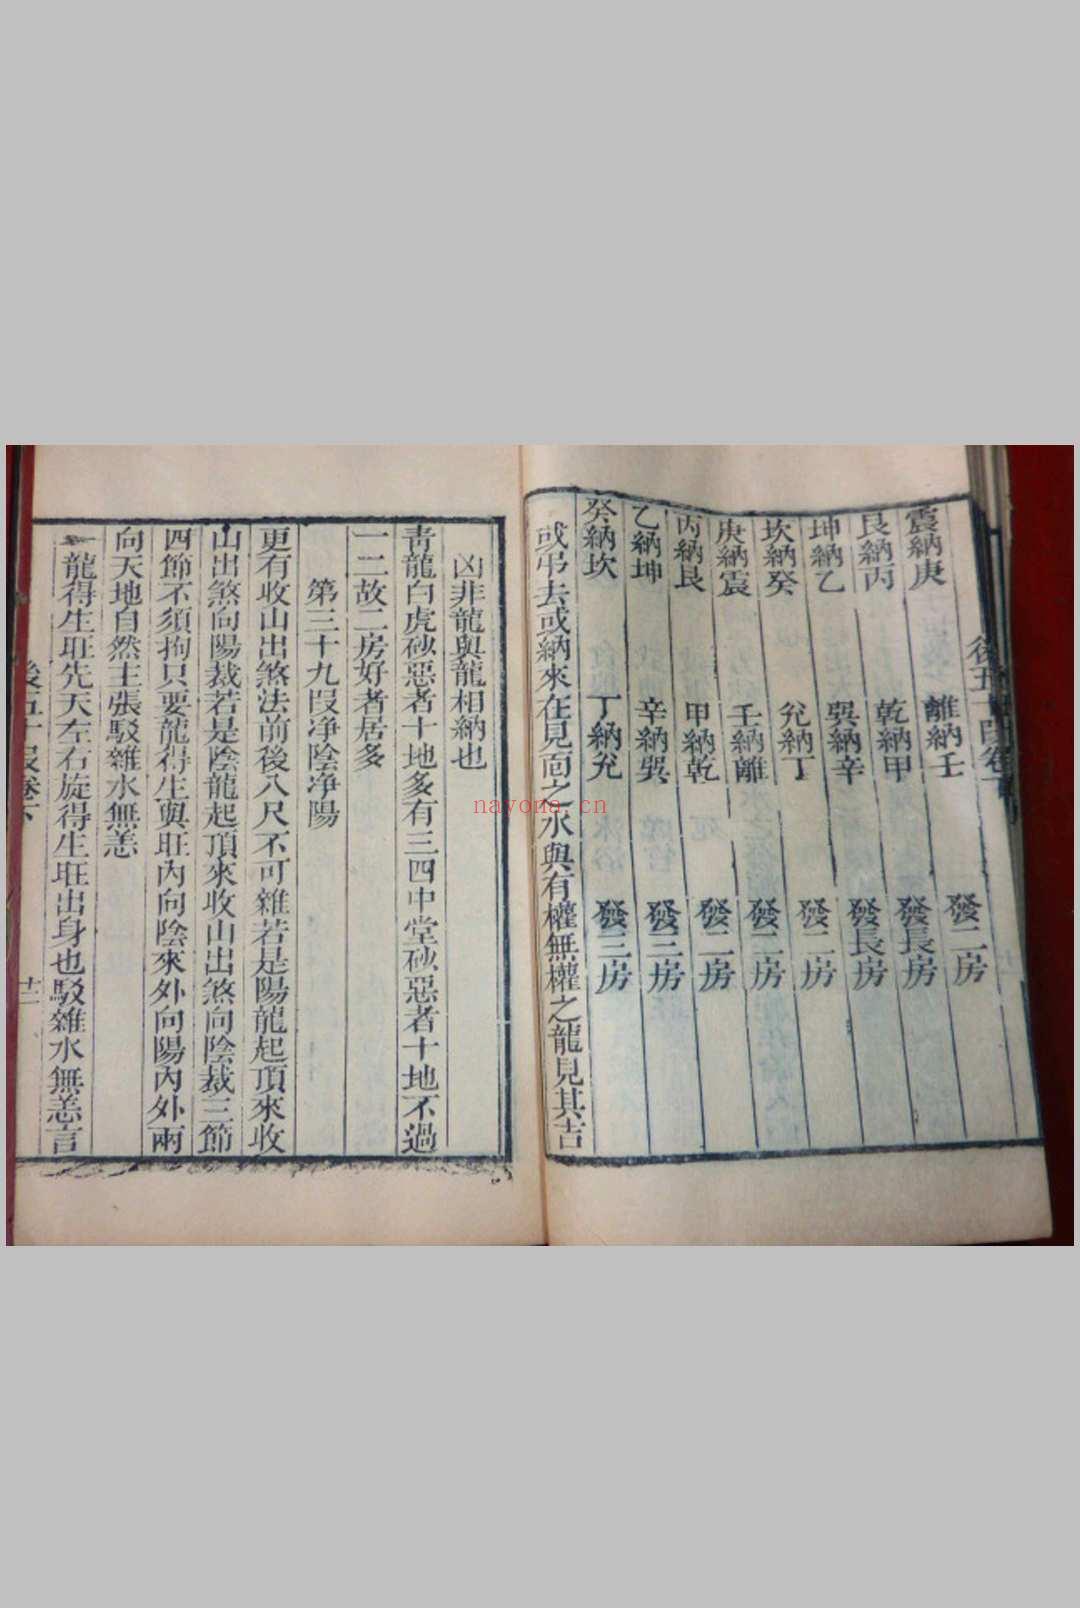 震納庚　離納壬　發二房
艮納丙　乾納甲　發長房
坤納乙　巽納辛　發長房
坎納癸　兊納丁　發二房
庚納震　壬納離　發二房
丙納艮　甲納乾　發二房
乙納坤　辛納巽　發三房
癸納坎　丁納兊　發三房
或弔去或納來在見面之水與有權無權之龍見其吉
凶非龍與龍相納也
靑龍白虎砂惡者十地多有三四中堂砂惡者十地不過
一二故二房好者居多
第三十九叚净陰净陽
更有收山出煞法前後八尺不可雜若是陽龍起頂來收
山出煞向陽裁若是陰龍起頂來收山出煞向陰裁三節
四節不須拘只要龍得生與旺內向陰來外向陽內外兩
向天地自然主張駁雜水無恙
龍得生旺先天左右旋得生旺出身也駁雜水無恙言
後五十叚卷下
nayona.cn